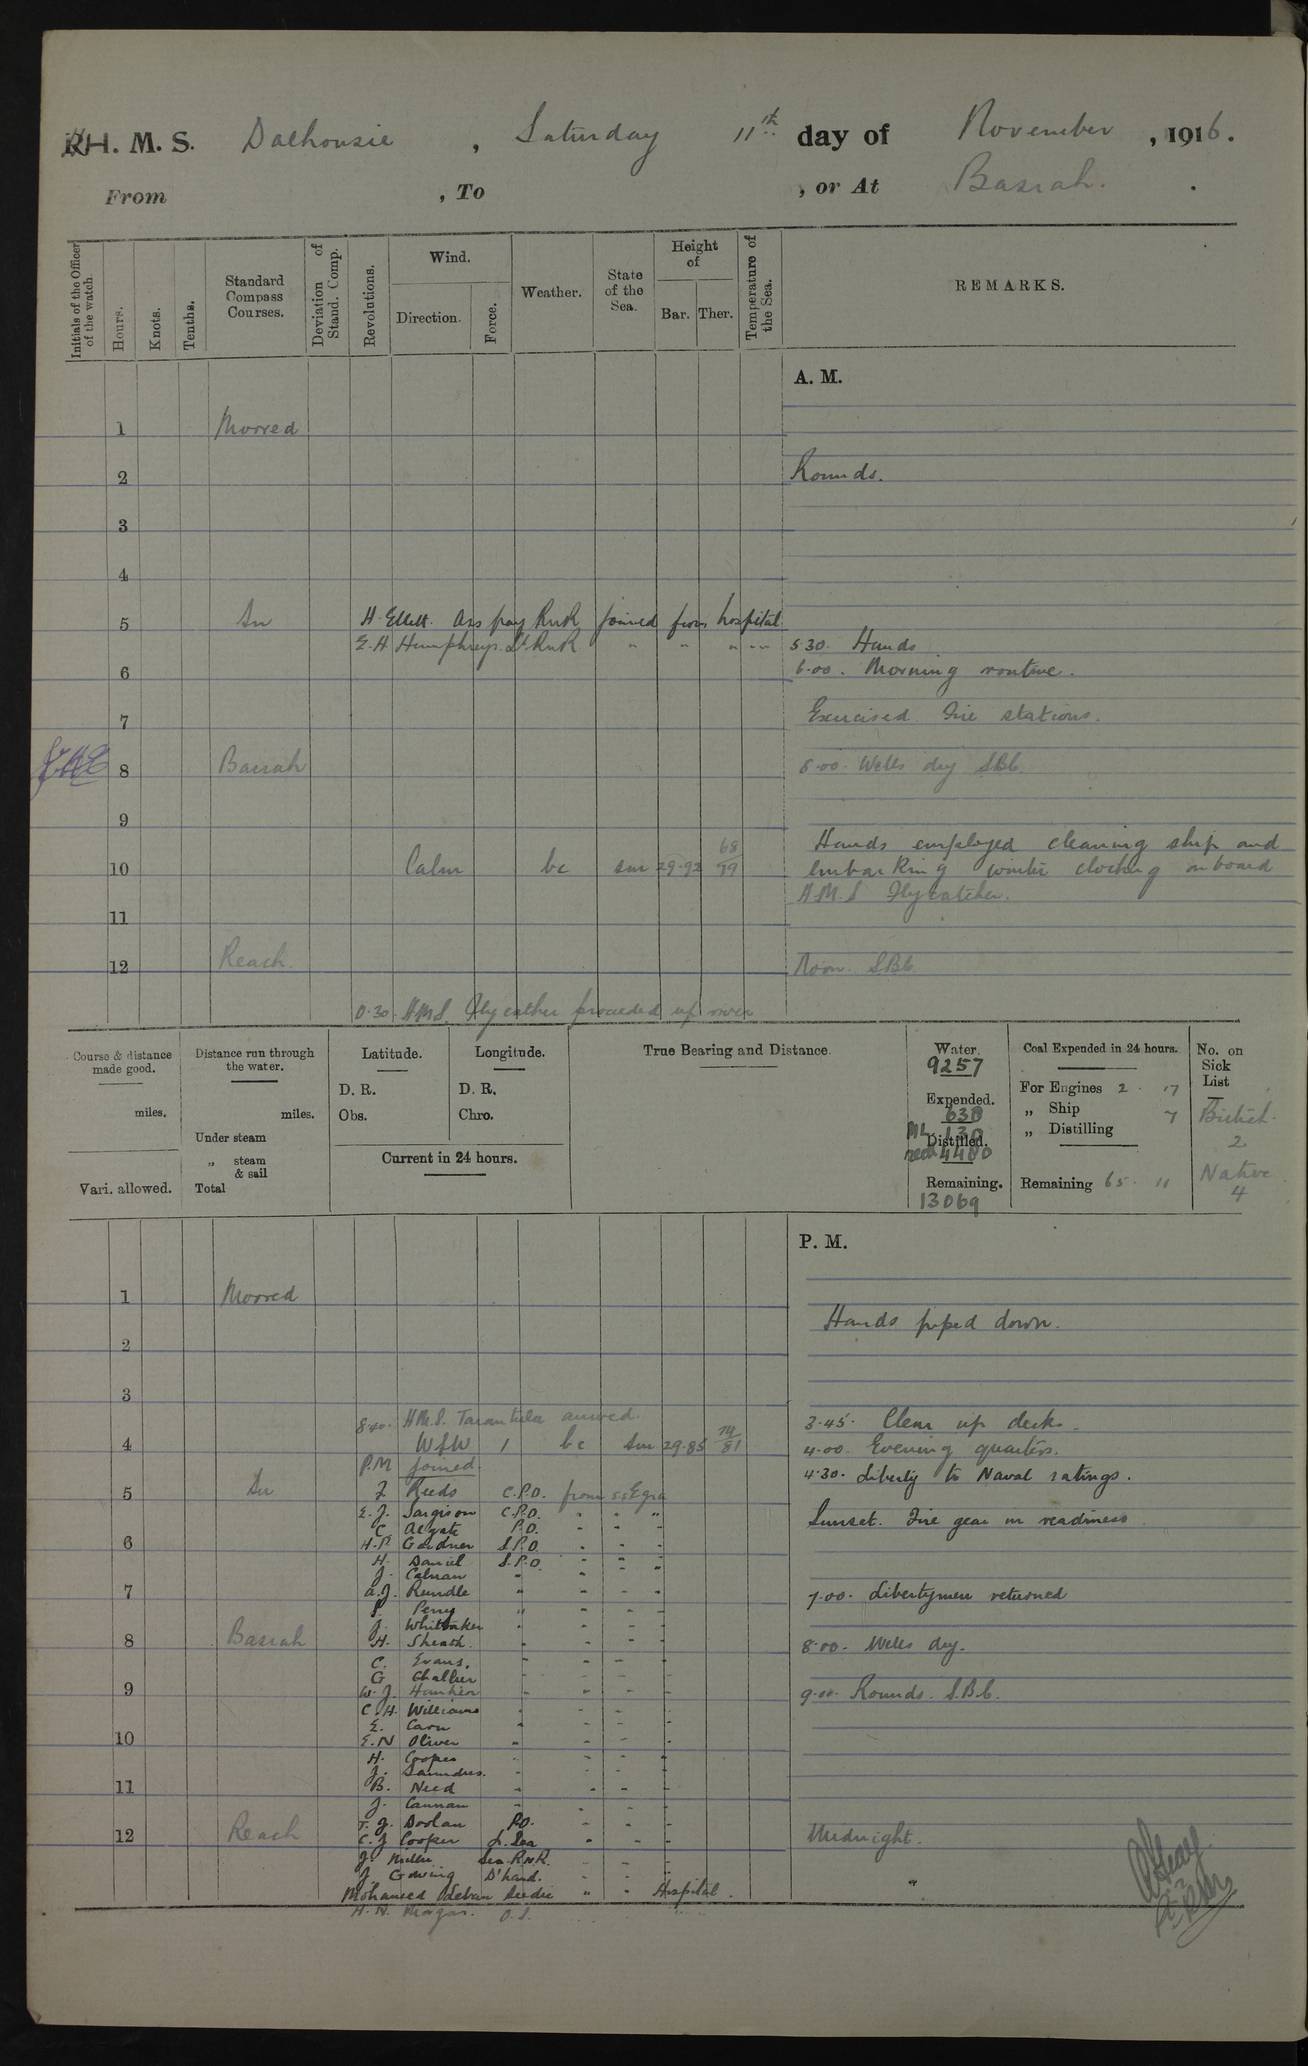 H. M. S. Dalhousie , Saturday 11th day of November , 1916.
From , To , or At Basrah.
Initials of the Officer of the watch.
Hours.
Knots.
Tenths.
Standard Compass Courses.
Deviation of Stand. Comp.
Revolutions.
Wind.
Direction.
Force.
Weather.
State of the Sea.
Height of
Bar. Ther.
Temperature of the Sea.
REMARKS.
A. M.
1 Moored
2 Rounds.
3
4
5 In H. Ellett. Ass pay RNR joined from hospital
E.H. Humphreys. Lt RNR " " " " "
5.30. Hands
6 6.00. Morning routine.
7 Exercised Fire stations.
8 Basrah 8.00. Wells dry SBC.
9
Hands employed cleaning ship and
10 Calm bc sm 29.92 68/79 embarking winter clothing on board
H.M.S Flycatcher.
11
12 Reach. Noon. SBC
0.30. HMS. Flycatcher proceeded up river
Course & distance made good.
miles.
Vari. allowed.
Distance run through the water.
miles.
Under steam
„ steam & sail
Total
Latitude.
D. R.
Obs.
Longitude.
D. R.
Chro.
Current in 24 hours.
True Bearing and Distance.
Water.
9257
Expended.
638
ML 130
Distilled.
recd 4480
Remaining.
13069
Coal Expended in 24 hours.
For Engines 2 . 17
„ Ship 7
„ Distilling
Remaining 65 . 11
No. on Sick List
British.
2
Native
4
P. M.
1 Moored
Hands piped down.
2
3
8.40. HM.S. Tarantula arrived. 3.45. Clear up decks.
4 WSW 1 bc sm 29.85 74/81 4.00. Evening quarters.
P.M joined. 4.30. Liberty to Naval ratings.
5 In J. Reeds C.P.O. from s.s Egra
E. J. Sargison C.P.O. " " " Sunset. Fire gear in readiness
C. Algate P.O. " " "
6 H.P. Gardner S.P.O. " " "
H. Daniel S.P.O. " " "
J. Calnan " " " "
7 A.J. Rundle " " " " 7.00. Libertymen returned
P. Perry " " " "
J. Whittaker " " " "
8 Basrah H. Sheath. " " " " 8.00. Wells dry.
C. Evans. " " " "
G Challier " " " "
9 W. J. Hawken " " " " 9.00. Rounds. S.B.C.
C.H. Williams " " " "
E. Carn " " " "
10 E.N Oliver " " " "
H. Cooper " " " "
J. Saunders. " " " "
11 B. Need " " " "
J. Cannan " " " "
T. J. Doolan P.O. " " "
12 Reach C. J Cooper L. Sea " " " Midnight.
J. Miller Sea. R.N.R. " " "
J. Gowing D'hand. " " "
Mohamed Seedie " " Hospital.
H. N. Morgan. O.S.